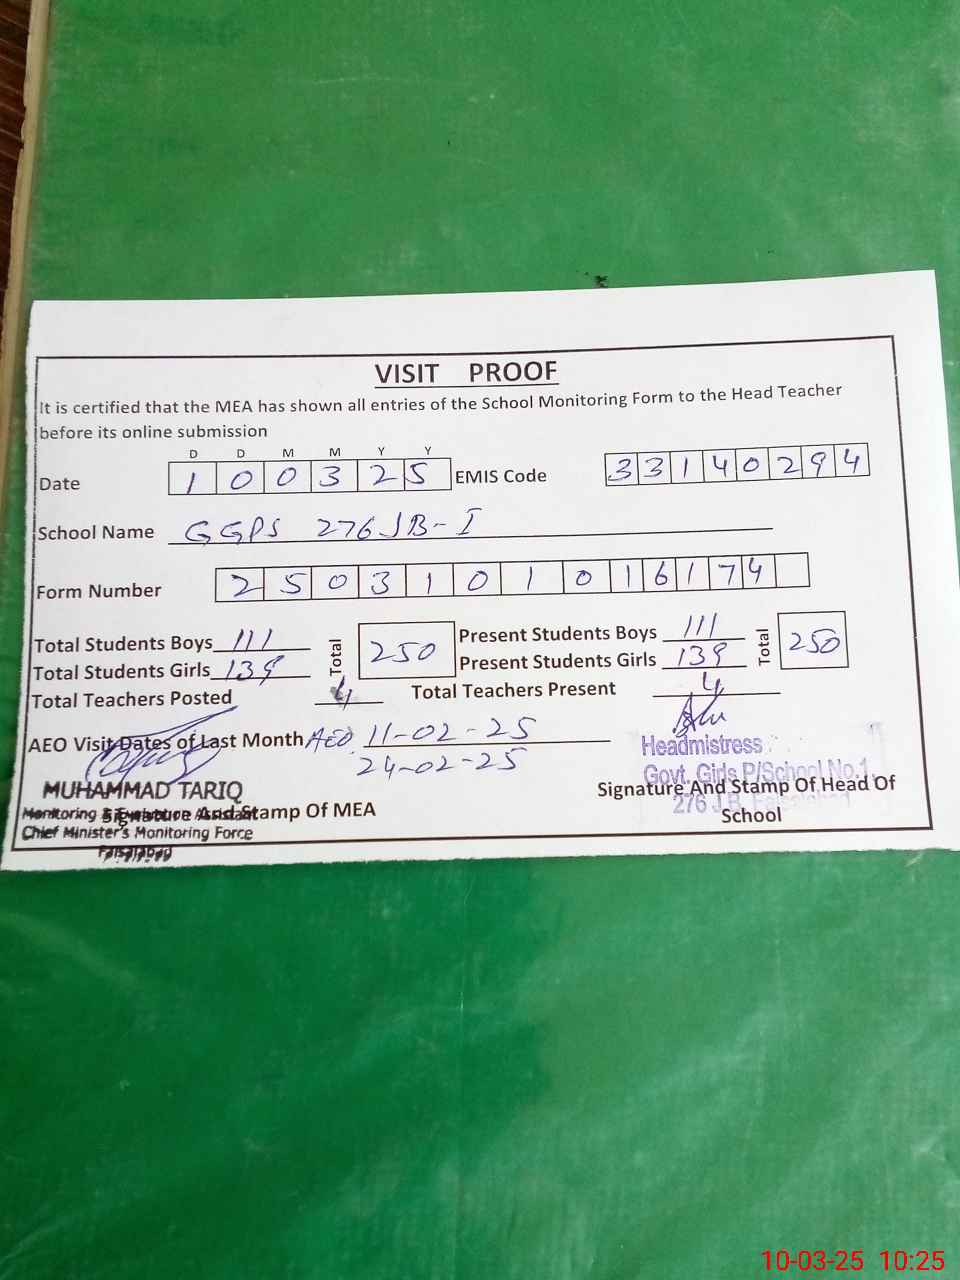 VISIT PROOF
It is certified that the MEA has shown all entries of the School Monitoring Form to the Head Teacher
before its online submission
D D M M Y Y
Date 1 0 0 3 2 5 EMIS Code 3 3 1 4 0 2 9 4
School Name GGPS 276 JB-I
Form Number 2 5 0 3 1 0 1 0 1 6 1 7 4
Total Students Boys 111 Total 250 Present Students Boys 111 Total 250
Total Students Girls 139 Present Students Girls 139
Total Teachers Posted 4 Total Teachers Present 4
AEO Visit Dates of Last Month AEO 11-02-25
24-02-25
Headmistress
Govt. Girls P/School No.1
276 J.B. Faisalabad
Signature And Stamp Of Head Of
School
MUHAMMAD TARIQ
Monitoring & Evaluation Assistant
Signature And Stamp Of MEA
Chief Minister's Monitoring Force
Faisalabad
10-03-25 10:25